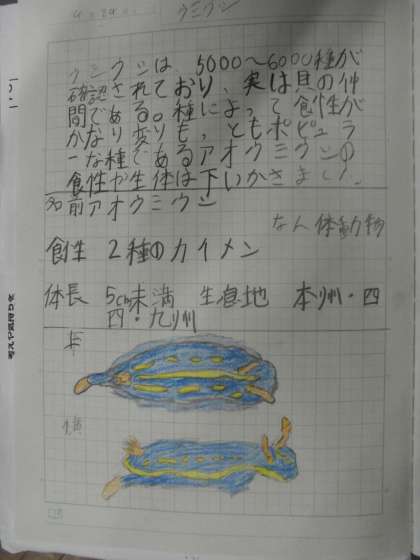 4.29. ウミウシ
ウミウシは、5000〜6000種が
確認されており、実は貝の仲
間である。種によって食性が
かなり変りも，ともポピュラ
ーな種であるアオウミウシの
食性や生体は下いかさまし
名前アオウミウシ
なん体動物
食性 2種のカイメン
体長 5cm未満 生息地 本州・四
四・九州
上
横